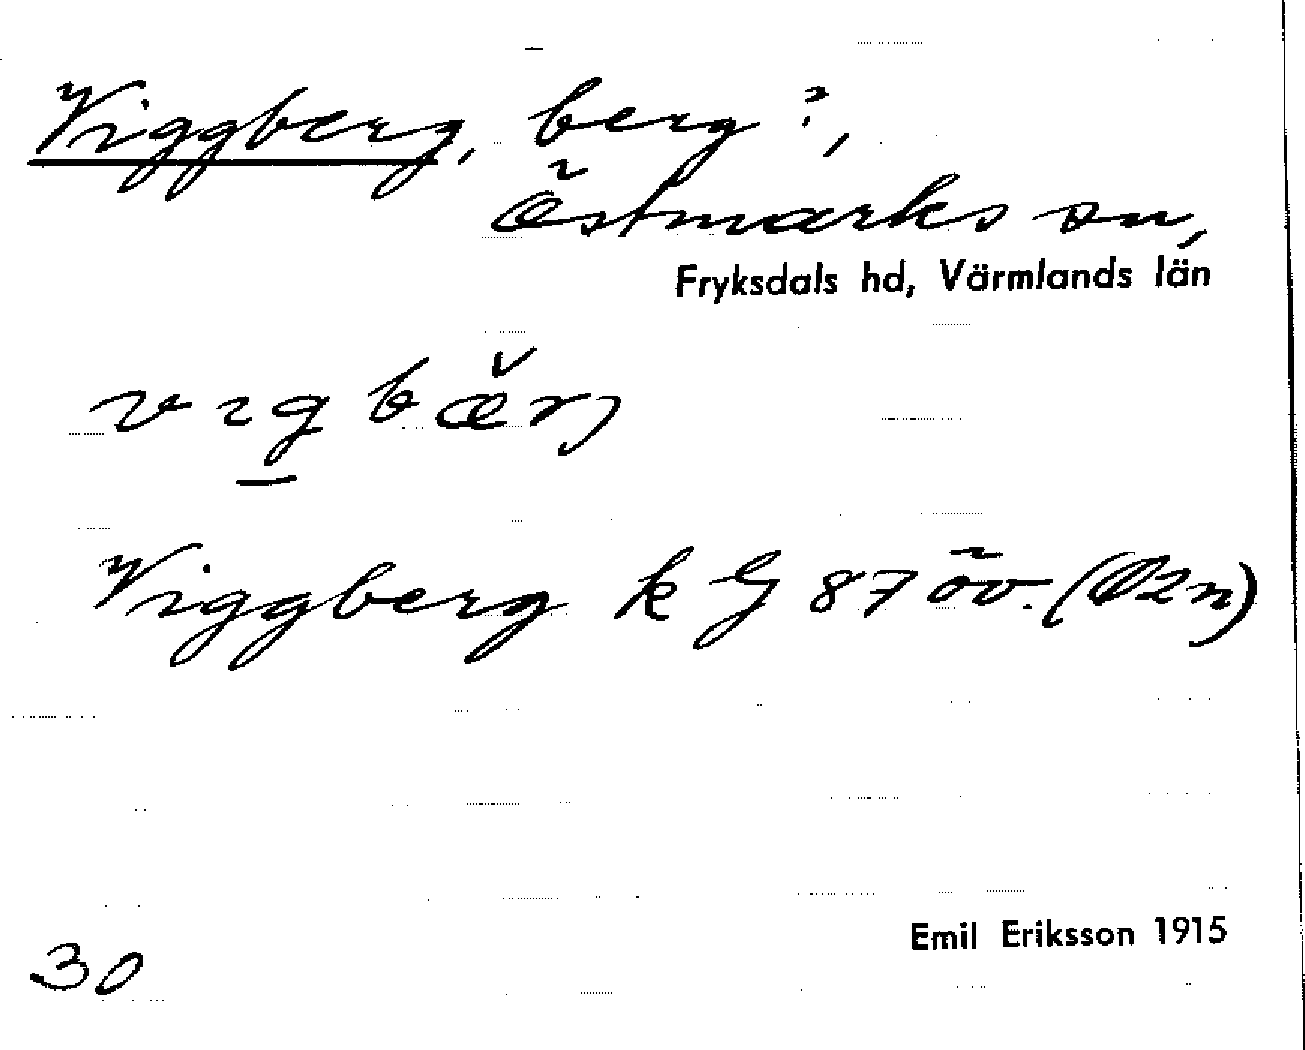 Viggberg, berg?,
Östmarks sn,
Fryksdals hd, Värmlands län
vɩg bæ̌rj
Viggberg k G 87 öv. (Ö2n)
Emil Eriksson 1915
30